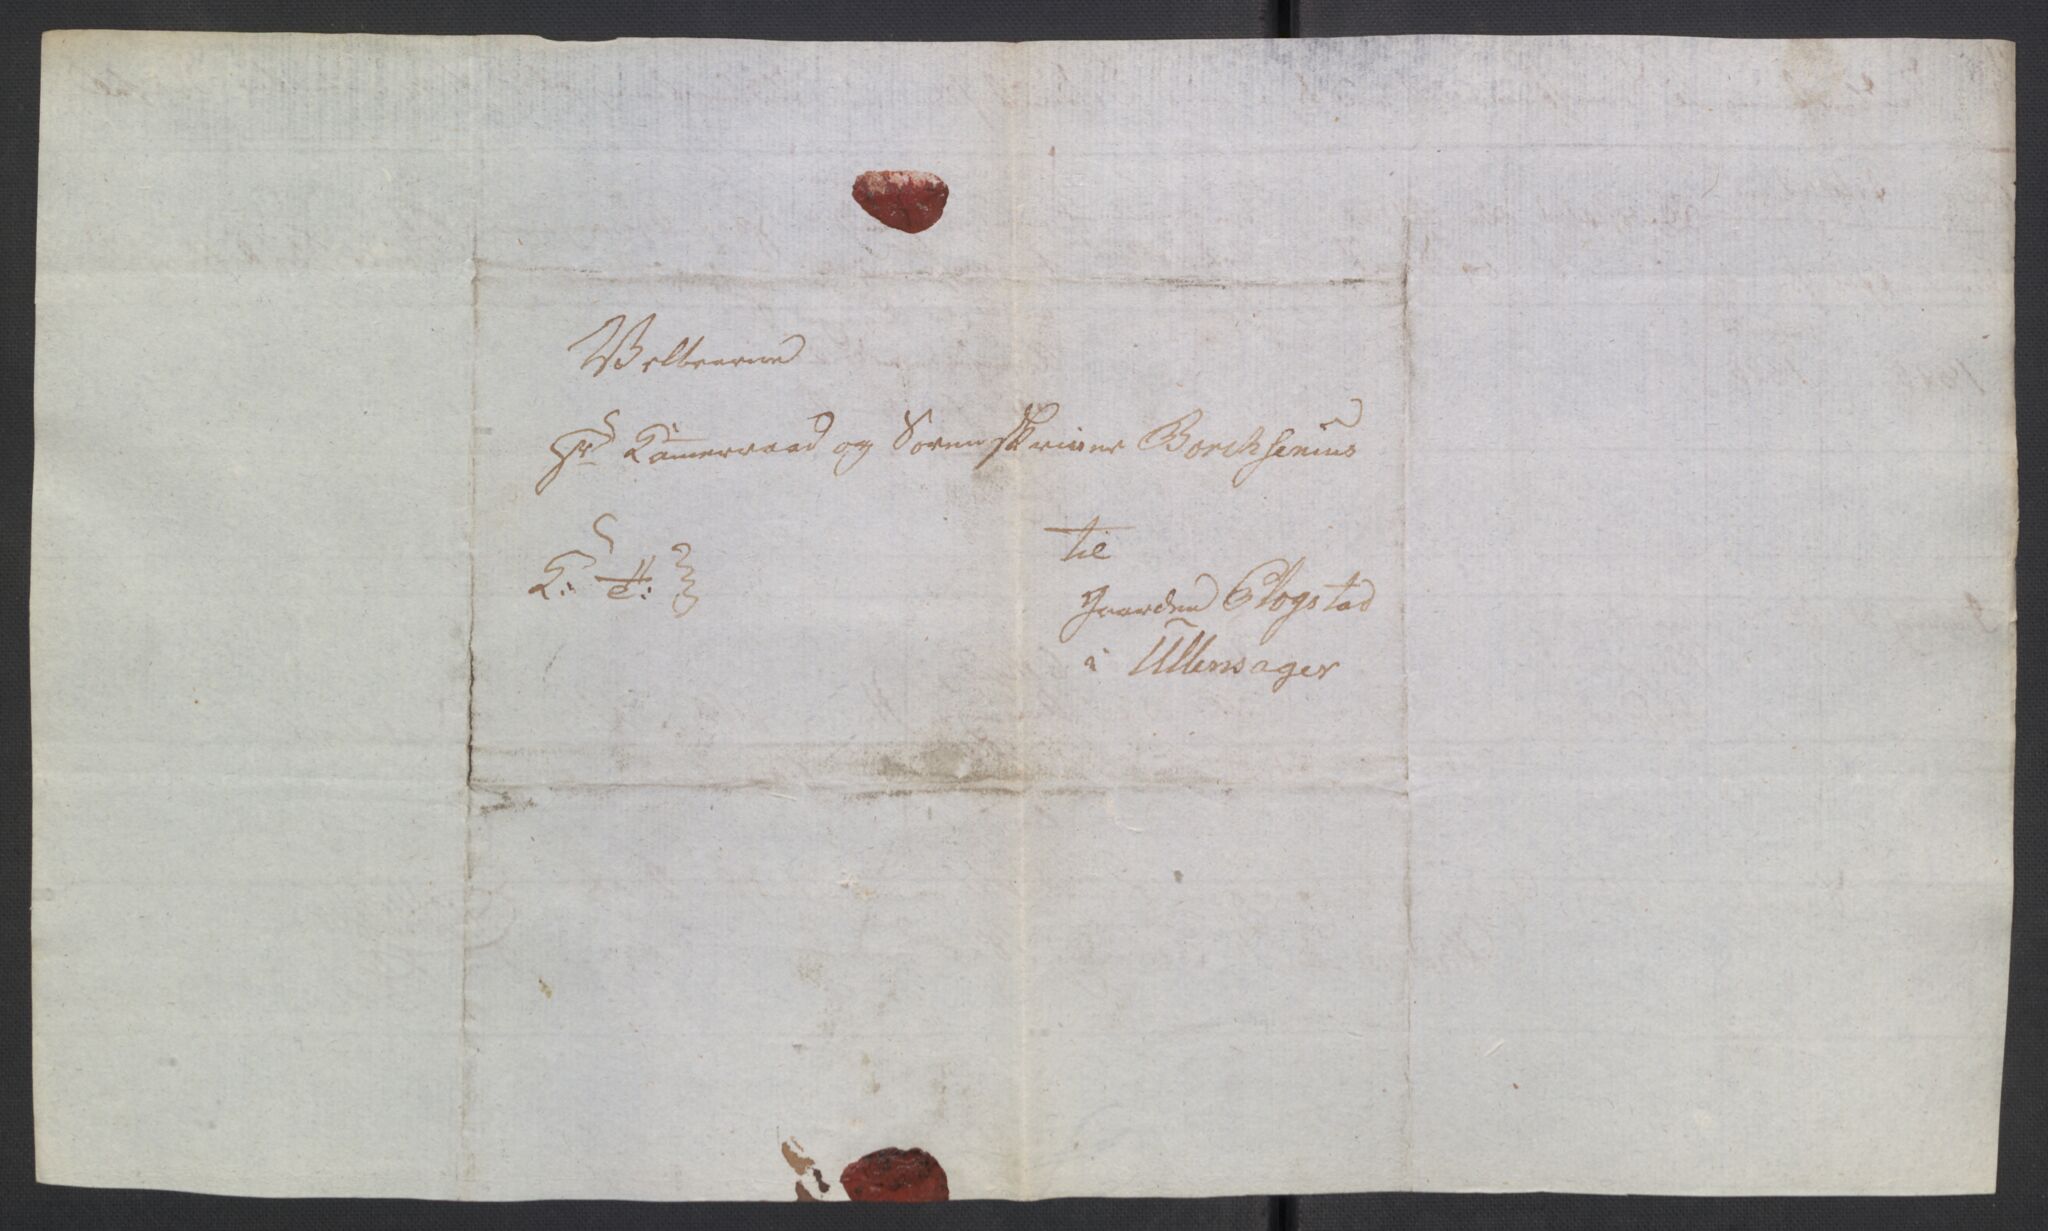 Velbaarne
Hr Kamerraad og Sorenskriver Borchsenius
til
Gaarden Elogstad
i Ullensager